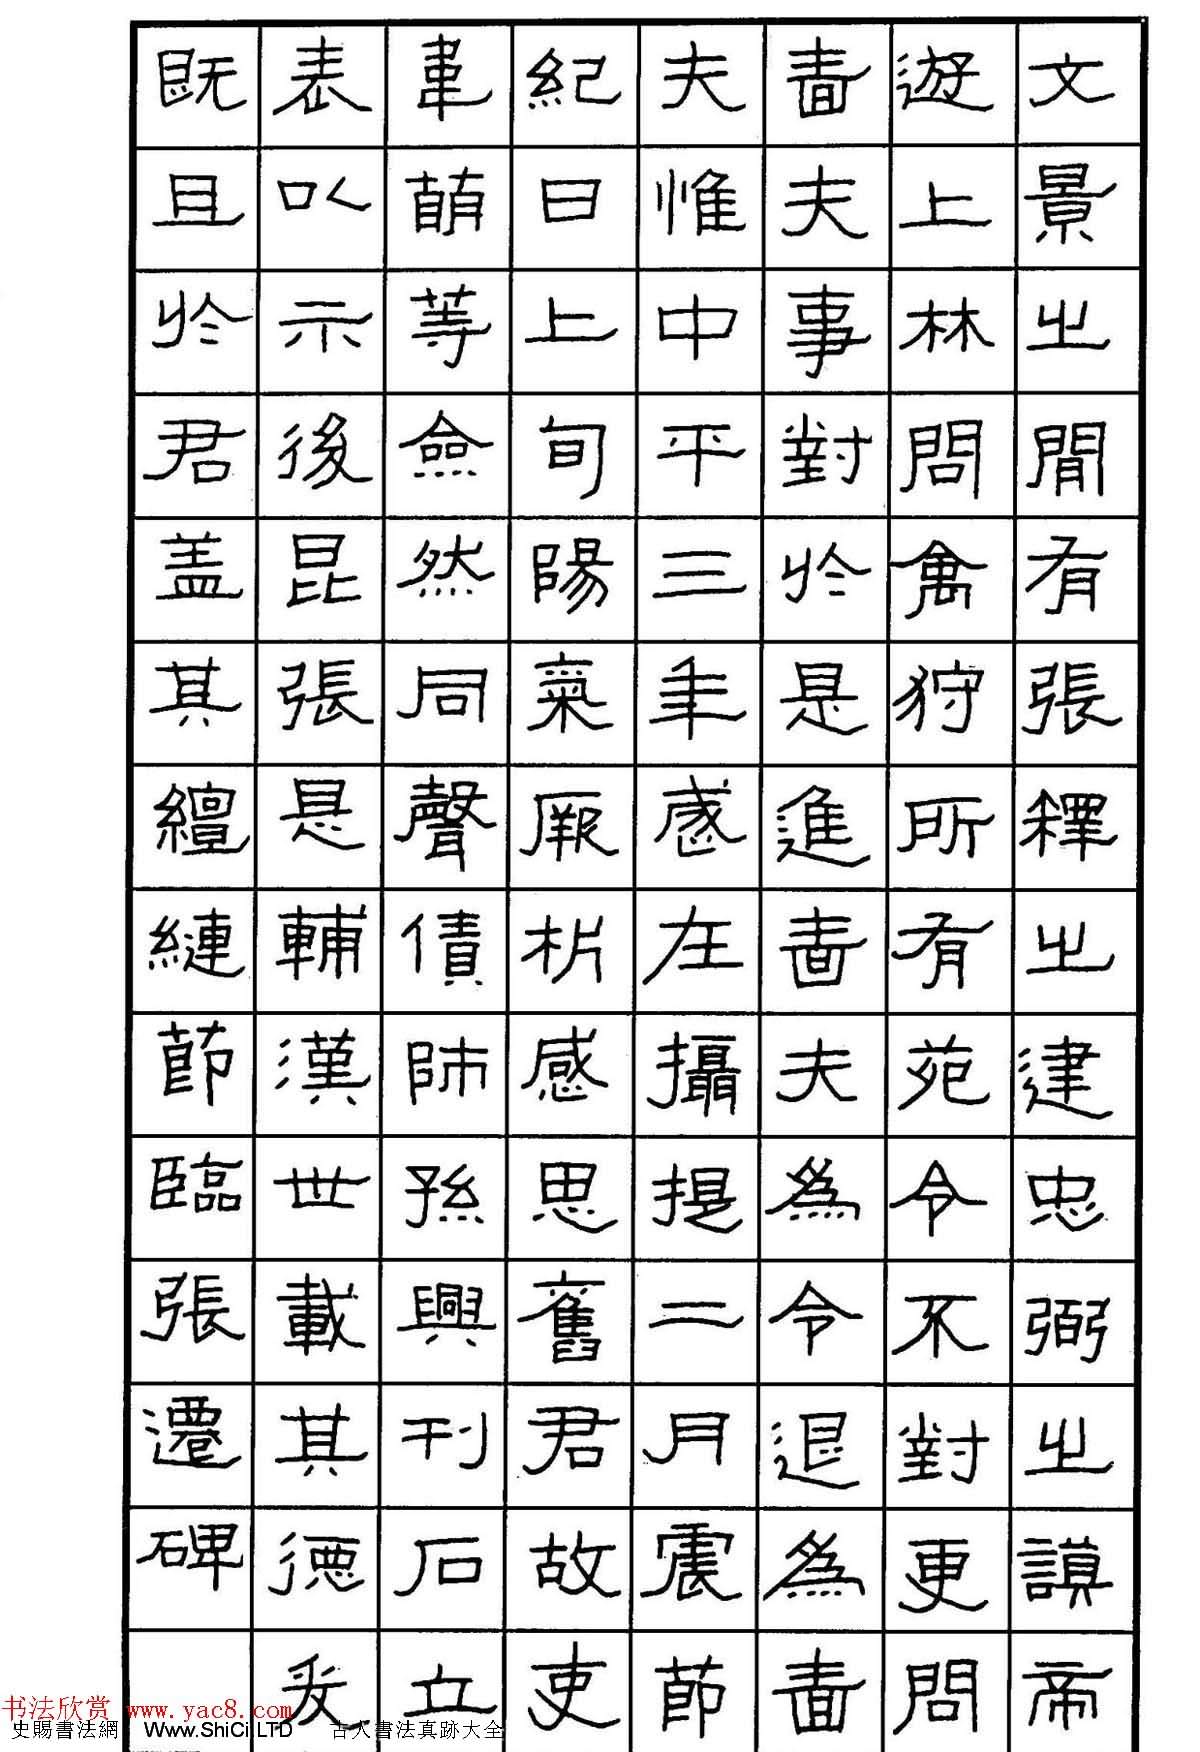 文景之間有張釋之建忠弼之謨帝
遊上林問禽狩所有苑令不對更問
嗇夫嗇夫事對於是進嗇夫為令退為嗇
夫惟中平三年歲在攝提二月震節
紀日上旬陽氣厥析感思舊君故吏
韋萌等僉然同聲賃師孫興刊石立
表以示後昆張是輔漢世載其德爰
既且於君蓋其繵縺節臨張遷碑
书法欣赏 www.yac8.com
史賜書法網 Www.ShiCi.LTD 古人書法真跡大全